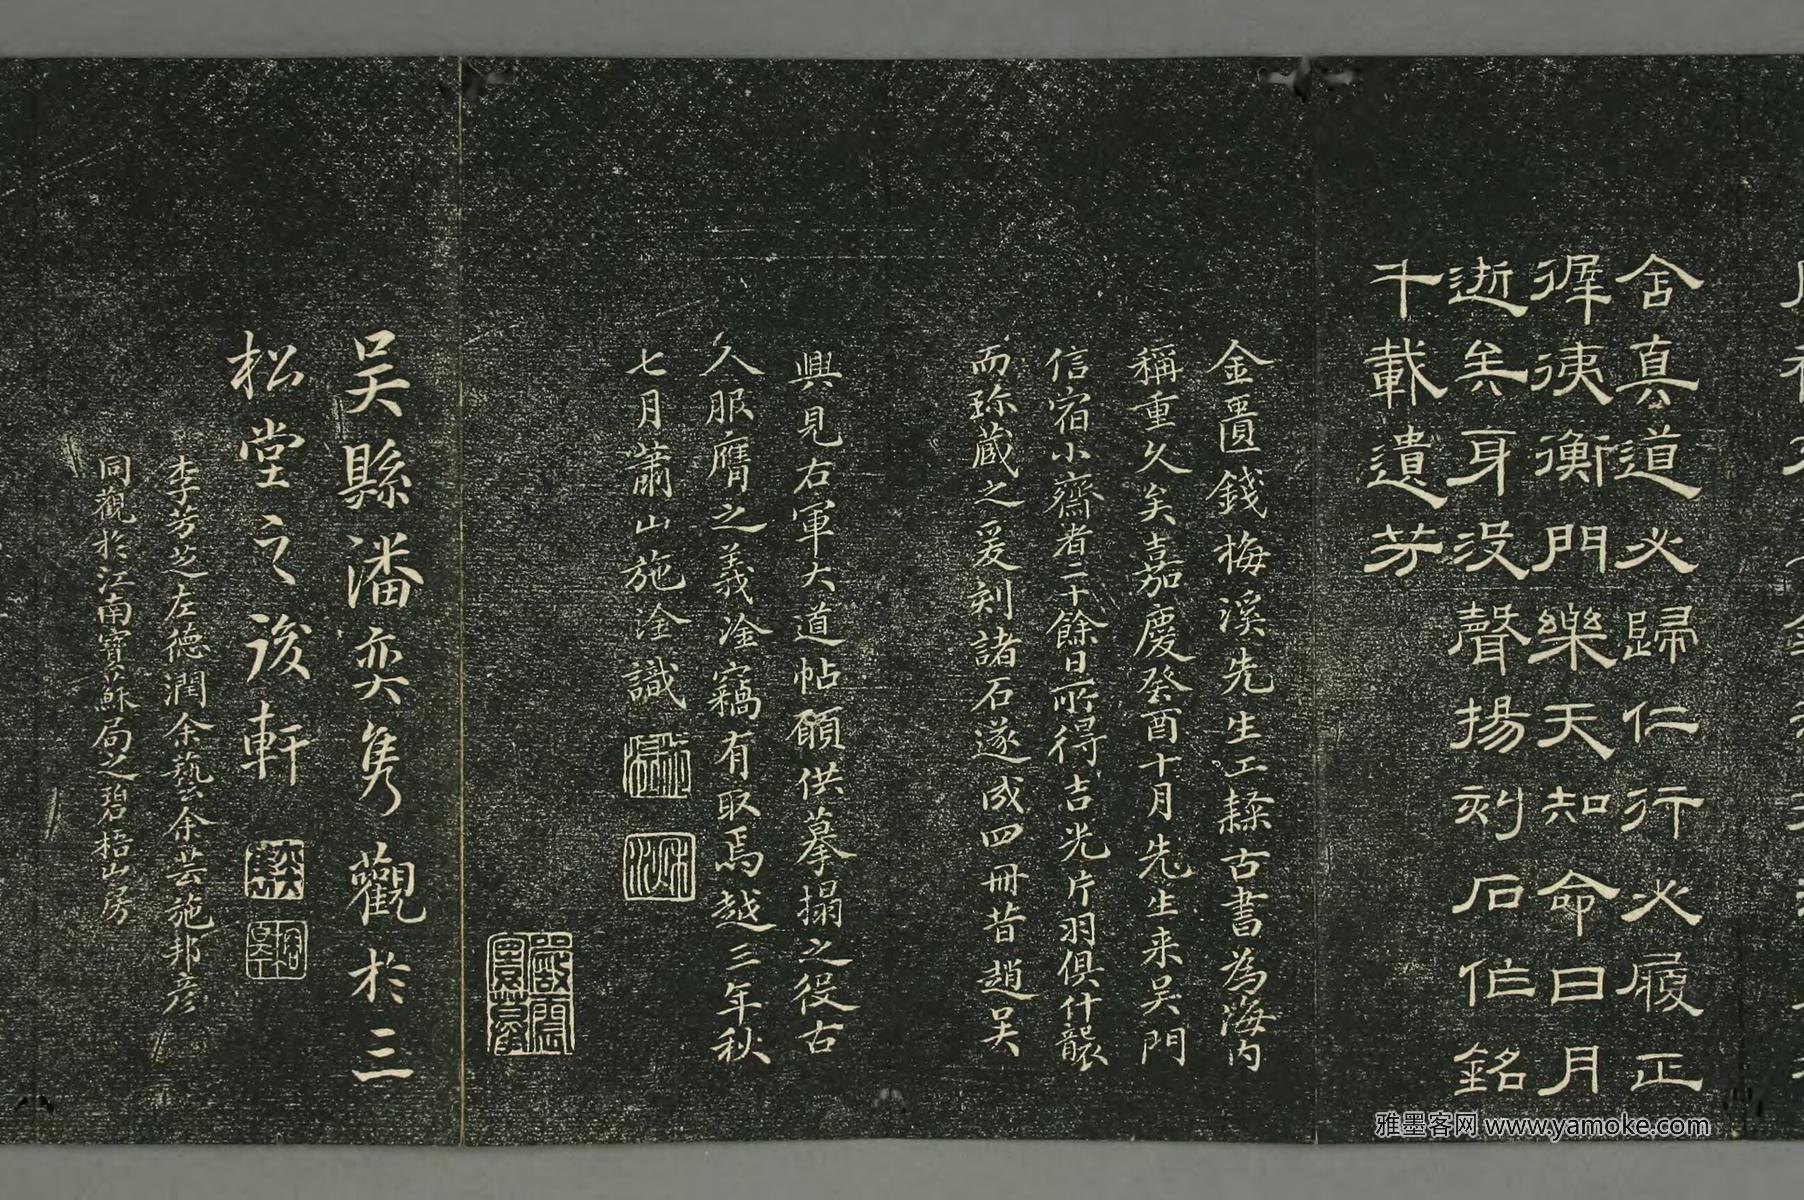 含真道必歸仁行必履正
徲洟衡門樂天知命日月
逝矣身没聲揚刻石作銘
千載遺芳
金匱錢梅溪先生工隸古書為海內
稱重久矣嘉慶癸酉十月先生来吴門
信宿小齋者二十餘日所得吉光片羽俱什襲
而珎藏之爰刻諸石遂成四冊昔趙吴
興見右軍大道帖願供摹搨之役古
人服膺之義淦竊有取焉越三年秋
七月蕭山施淦識
吴縣潘奕雋觀於三
松堂之後軒
李芳芝左德潤余藝余芸施邦彥
同觀於江南寶蘇局之碧梧山房
雅墨客网 www.yamoke.com